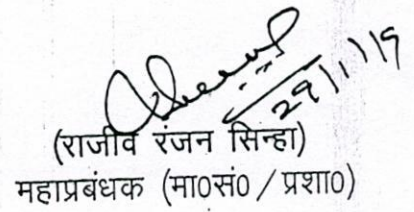 29/1/19
(राजीव रंजन सिन्हा)
महाप्रबंधक (मा०सं० / प्रशा०)